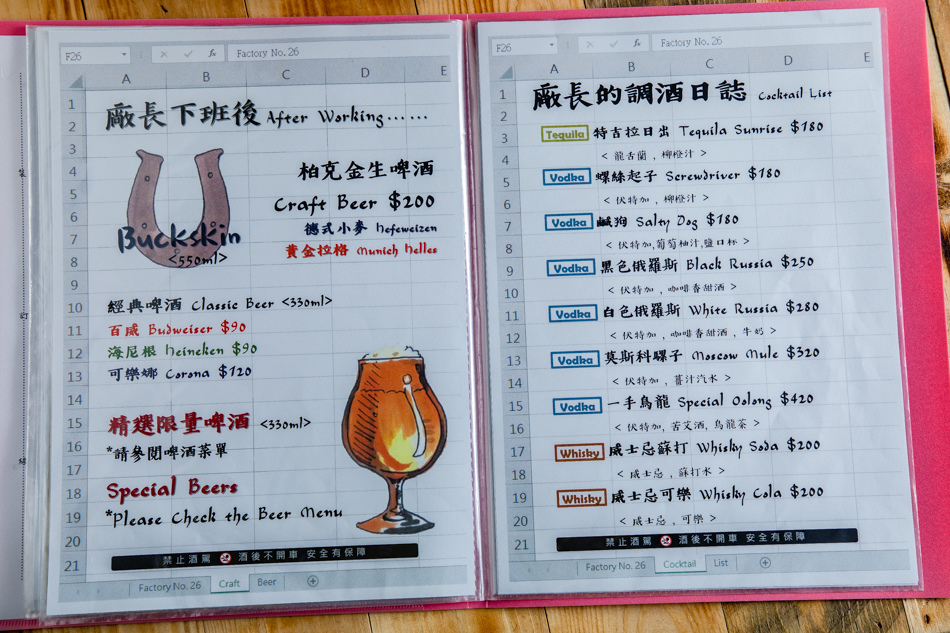 F26 × ✓ fx Factory No. 26
A B C D E
1
廠長下班後 After Working……
2
3
柏克金生啤酒
4
5
Craft Beer $200
6
德式小麥 Hefeweizen
7
Buckskin
黃金拉格 Munich Helles
8
<550ml>
9
10
經典啤酒 Classic Beer <330ml>
11
百威 Budweiser $90
12
海尼根 Heineken $90
13
可樂娜 Corona $120
14
15
精選限量啤酒 <330ml>
16
*請參閱啤酒菜單
17
18
Special Beers
19
*Please Check the Beer Menu
20
21
禁止酒駕 酒後不開車 安全有保障
Factory No. 26 Craft Beer
裝
訂
線
F26 × ✓ fx Factory No. 26
A B C D E
1
廠長的調酒日誌 Cocktail List
2
3
Tequila 特吉拉日出 Tequila Sunrise $180
4
< 龍舌蘭 , 柳橙汁 >
5
Vodka 螺絲起子 Screwdriver $180
6
< 伏特加 , 柳橙汁 >
7
Vodka 鹹狗 Salty Dog $180
8
< 伏特加,葡萄柚汁,鹽口杯 >
9
Vodka 黑色俄羅斯 Black Russia $250
10
< 伏特加 , 咖啡香甜酒 >
11
Vodka 白色俄羅斯 White Russia $280
12
< 伏特加 , 咖啡香甜酒 , 牛奶 >
13
Vodka 莫斯科騾子 Moscow Mule $320
14
< 伏特加 , 薑汁汽水 >
15
Vodka 一手烏龍 Special Oolong $420
16
< 伏特加, 苦艾酒, 烏龍茶 >
17
Whisky 威士忌蘇打 Whisky Soda $200
18
< 威士忌 , 蘇打水 >
19
Whisky 威士忌可樂 Whisky Cola $200
20
< 威士忌 , 可樂 >
21
禁止酒駕 酒後不開車 安全有保障
Factory No. 26 Cocktail List